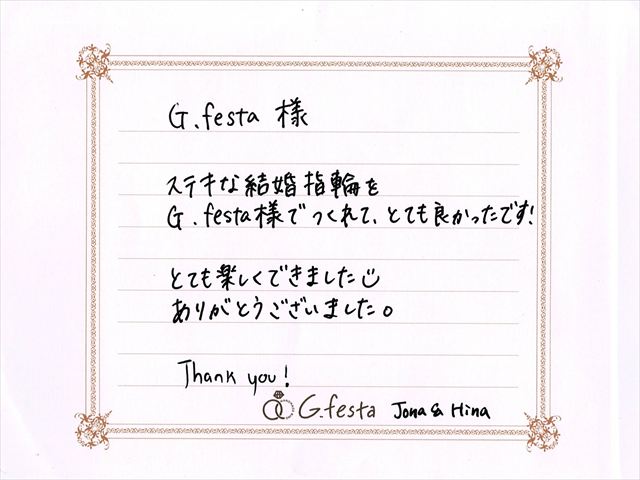 G.festa 様
ステキな結婚指輪を
G.festa様でつくれて、とても良かったです!
とても楽しくできました
ありがとうございました。
Thank you!
G.festa Jona & Hina